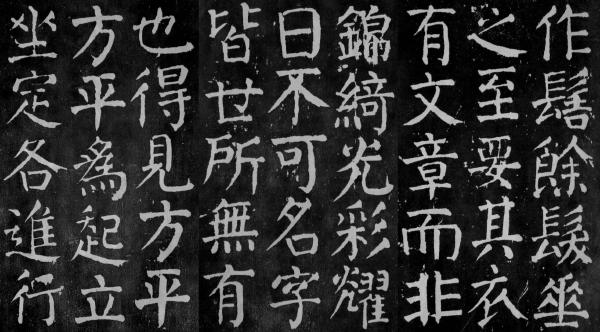 作髻餘髮垂
之至要其衣
有文章而非
錦綺光彩耀
日不可名字
皆世所無有
也得見方平
方平爲起立
坐定各進行